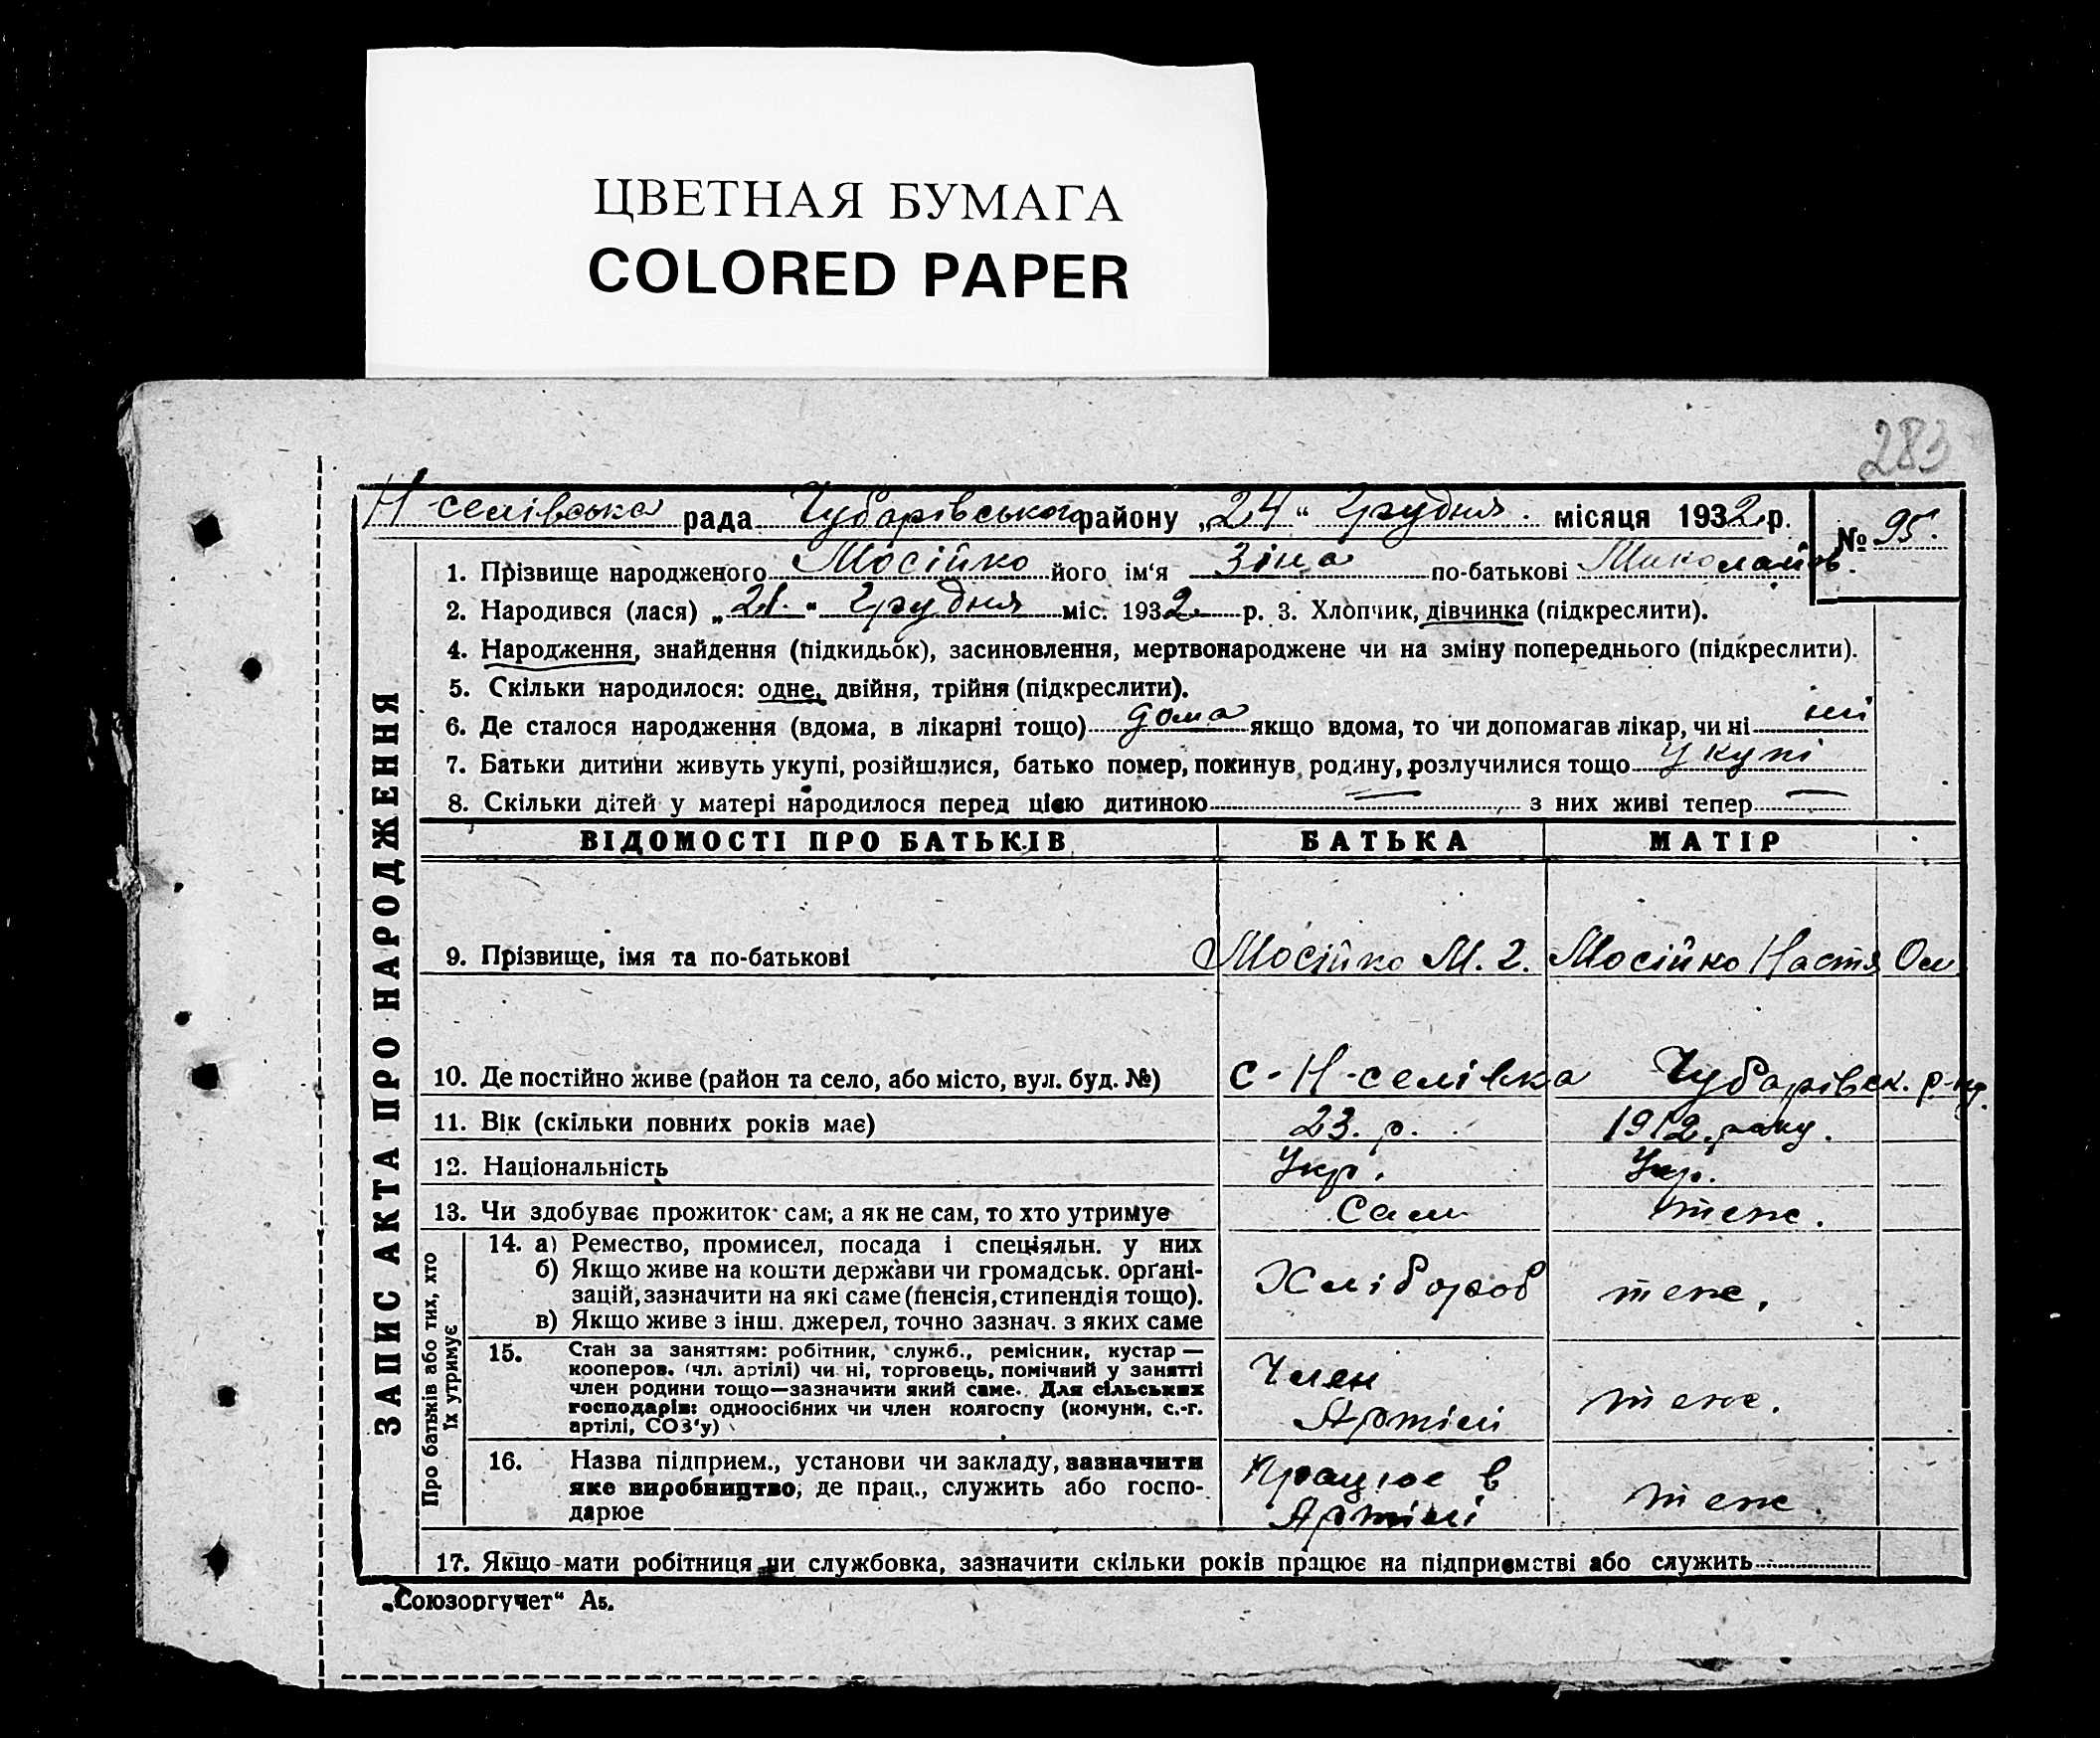 ЦВЕТНАЯ БУМАГА
COLORED PAPER
283
Н-селівська рада Чубарівського району „24“ Грудня. місяця 1932 р.
№ 95.
ЗАПИС АКТА ПРО НАРОДЖЕННЯ
1. Прізвище народженого Мосійко його ім‘я Зіна по-батькові Миколайов.
2. Народився (лася) „21.“ Грудня міс. 1932 р. 3. Хлопчик, дівчинка (підкреслити).
4. Народження, знайдення (підкидьок), засиновлення, мертвонароджене чи на зміну попереднього (підкреслити).
5. Скільки народилося: одне, двійня, трійня (підкреслити).
6. Де сталося народження (вдома, в лікарні тощо) дома якщо вдома, то чи допомагав лікар, чи ні ні
7. Батьки дитини живуть укупі, розійшлися, батько помер, покинув родину, розлучилися тощо укупі
8. Скільки дітей у матері народилося перед цією дитиною — з них живі тепер —
ВІДОМОСТІ ПРО БАТЬКІВ БАТЬКА МАТІР
9. Прізвище, імя та по-батькові Мосійко М. Г. Мосійко Настя Ом
10. Де постійно живе (район та село, або місто, вул. буд. №) с-Н-селівка Чубарівск. р-ну.
11. Вік (скільки повних років має) 23. р. 1912. року.
12. Національність Укр. Укр.
13. Чи здобуває прожиток сам, а як не сам, то хто утримує Сам теж.
Про батьків або тих, хто їх утримує
14. а) Ремество, промисел, посада і спеціяльн. у них
б) Якщо живе на кошти держави чи громадськ. орґані-
зацій, зазначити на які саме (пенсія, стипендія тощо).
в) Якщо живе з інш. джерел, точно зазнач. з яких саме
Хлібороб теж.
15. Стан за заняттям: робітник, служб., ремісник, кустар —
кооперов. (чл. артілі) чи ні, торговець, помічний у занятті
член родини тощо—зазначити який саме. Для сільських
господарів: одноосібних чи член колгоспу (комуни, с.-г.
артілі, СОЗ'у)
Член
Артілі
теж.
16. Назва підприєм., установи чи закладу, зазначити
яке виробництво, де прац., служить або госпо-
дарює
Працює в
Артілі
теж.
17. Якщо мати робітниця чи службовка, зазначити скільки років працює на підприємстві або служить
„Союзоргучет“ А5.